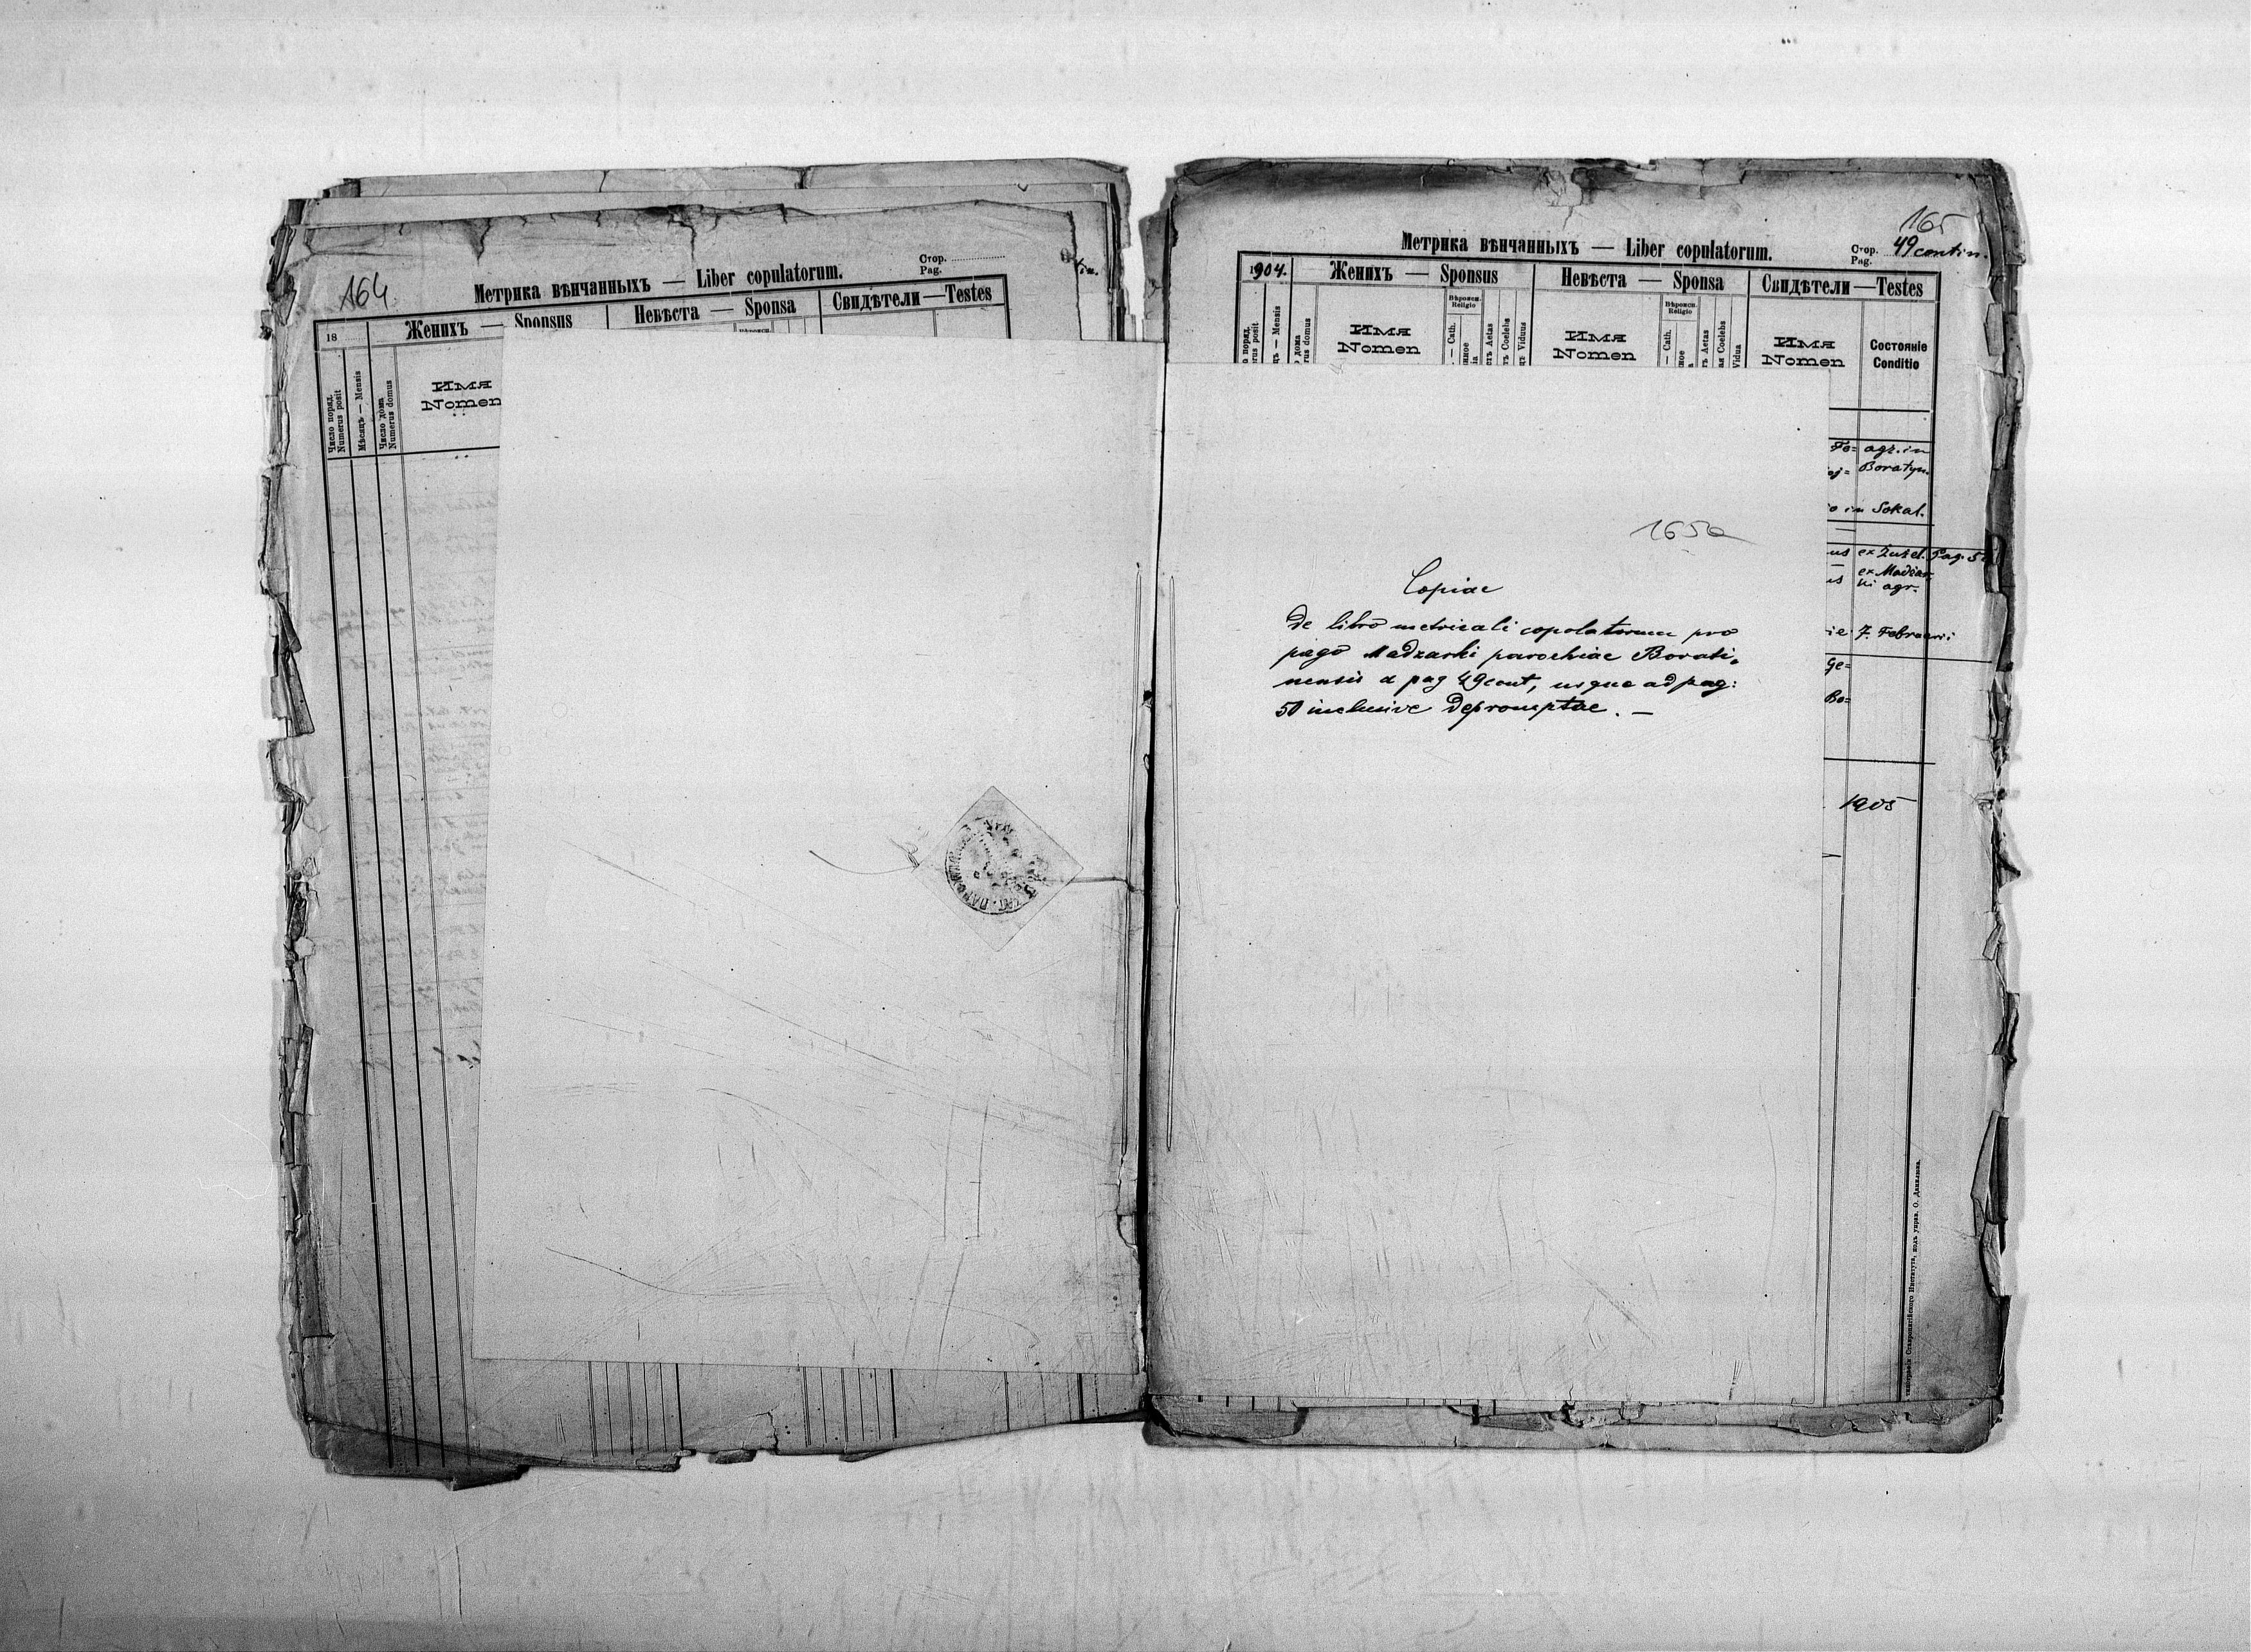 164
Метрика вѣнчанныхъ — Liber copulatorum.
Стор.
Pag.
18
Женихъ — Sponsus
Невѣста — Sponsa
Свидѣтели — Testes
Число поряд.
Numerus posit
Мѣсяцъ — Mensis
Число дома
Numerus domus
Имя
Nomen
165
Метрика вѣнчанныхъ — Liber copulatorum.
Стор.
Pag.
49 contin.
1904.
Женихъ — Sponsus
Невѣста — Sponsa
Свидѣтели — Testes
Имя
Nomen
Вѣроисп.
Religio
Имя
Nomen
Вѣроисп.
Religio
Имя
Nomen
Состояніе
Conditio
165a
Copiae
de libro metricali copolatorum pro
pago Madzarki parochiae Borati-
nensis a pag 49cont, usque ad pag:
50 inclusive depromptae. —
agr. in
Boratyn.
in Sokal.
Pag. 5
agr.
7. Februarii
Ge=
Bo=
1905